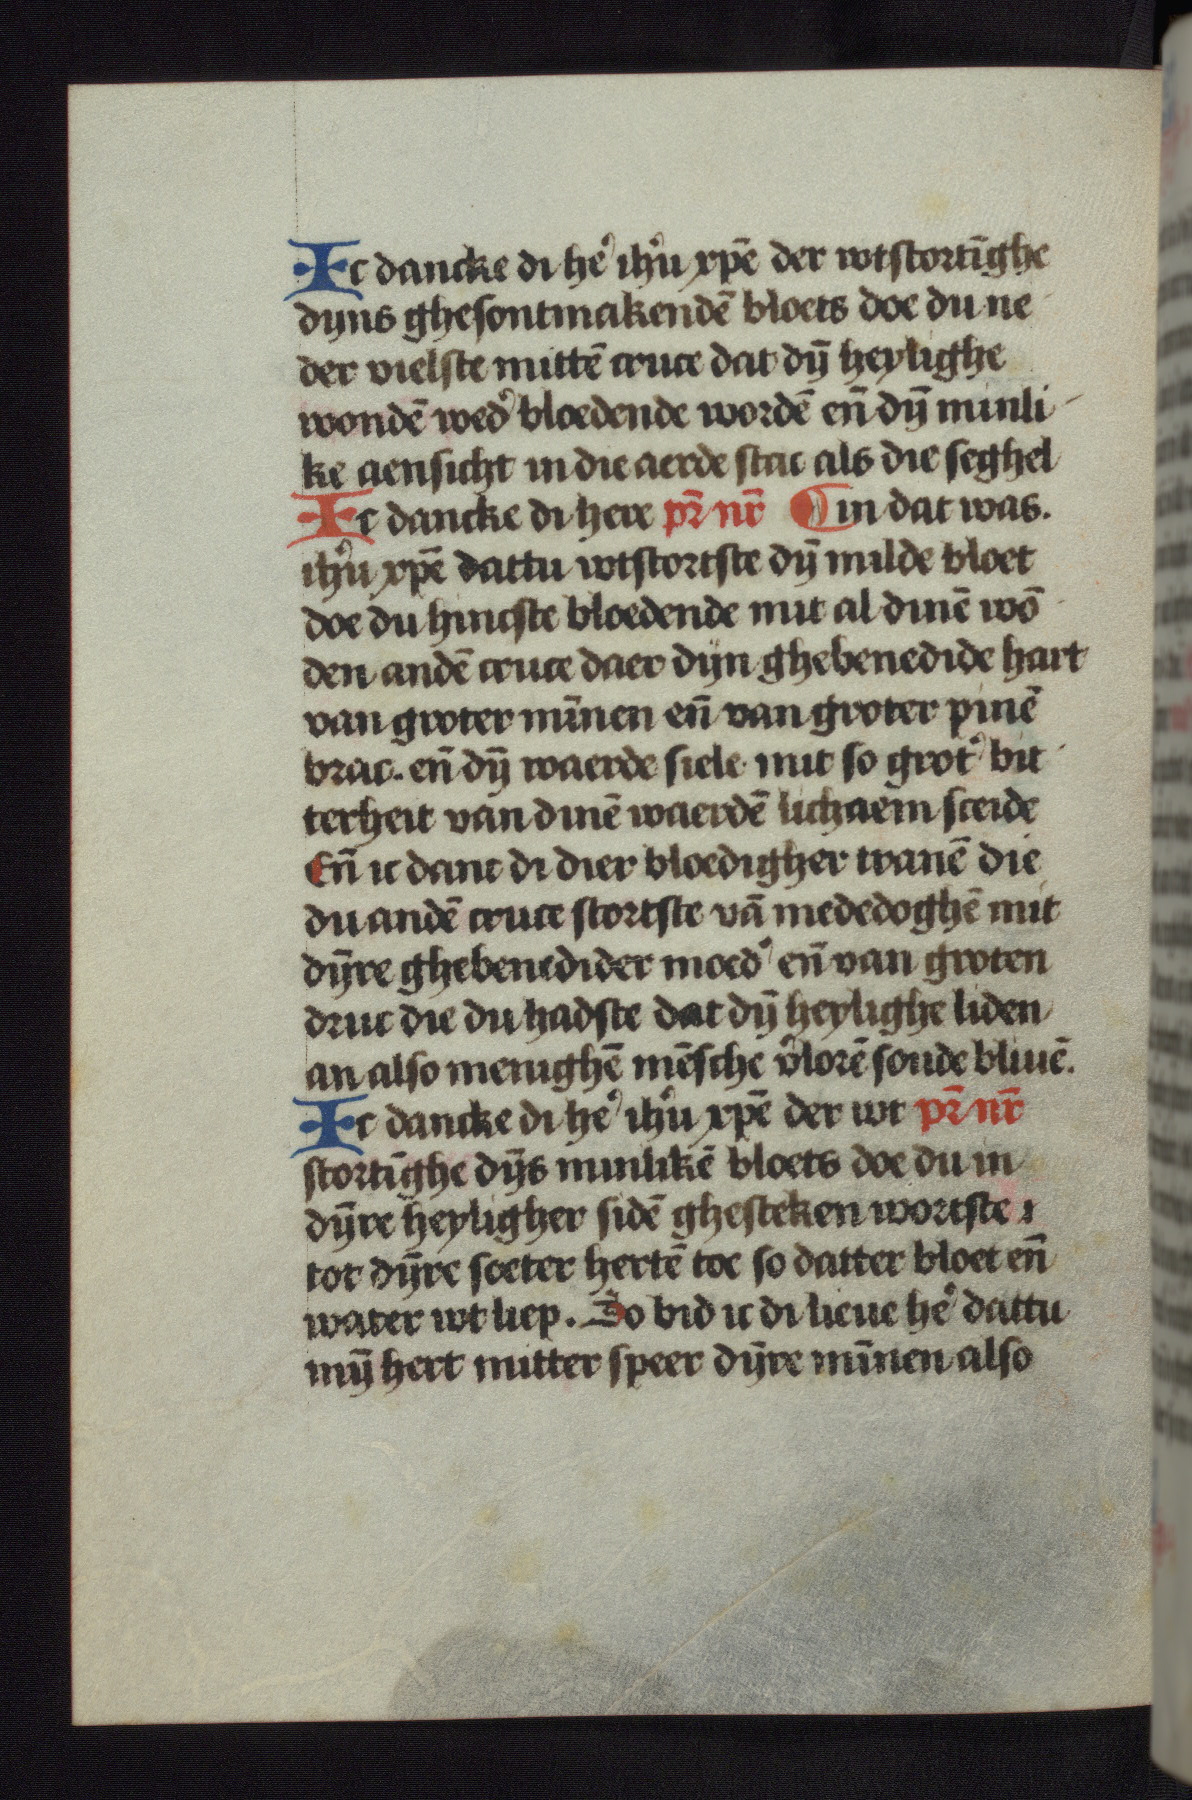 Ic dancke di he᷒ ih᷒u xpē der wtstortīghe
dyns ghesontmakendē bloets doe du ne
der vielste mittē cruce dat dȳ heylighe
wondē wed᷒ bloedende wordē en̄ dȳ minli-
ke aensicht in die aerde stac als die seghel
Ic dancke di here pr̄ nr̄ ¶ in dat was.
ih᷒u xpē dattu wtstortste dȳ milde bloet
doe du hincste bloedende mit al dinē wō
den andē cruce daer dyn ghebenedide hart
van groter mīnen en̄ van groter pinē
brac. en̄ dȳ waerde siele mit so grot᷒ bit
terheit van dinē waerdē lichaem sceide
En̄ ic danc di dier bloedigher tranē die
du andē cruce stortste vā mededoghē mit
dȳre ghebenedider moed᷒ en̄ van groten
druc die du hadste dat dȳ heylighe liden
an also menighē mēsche v᷒lorē soude bliuē.
Ic dancke di he᷒ ih᷒u xpē der wt pr̄ nr̄
stortīghe dȳs minlikē bloets doe du in
dȳre heyligher sidē ghesteken wortste
tot dȳre soeter hertē toe so datter bloet en̄
water wt liep. So bid ic di lieue he᷒ dattu
mȳ hert mitter speer dȳre mīnen also